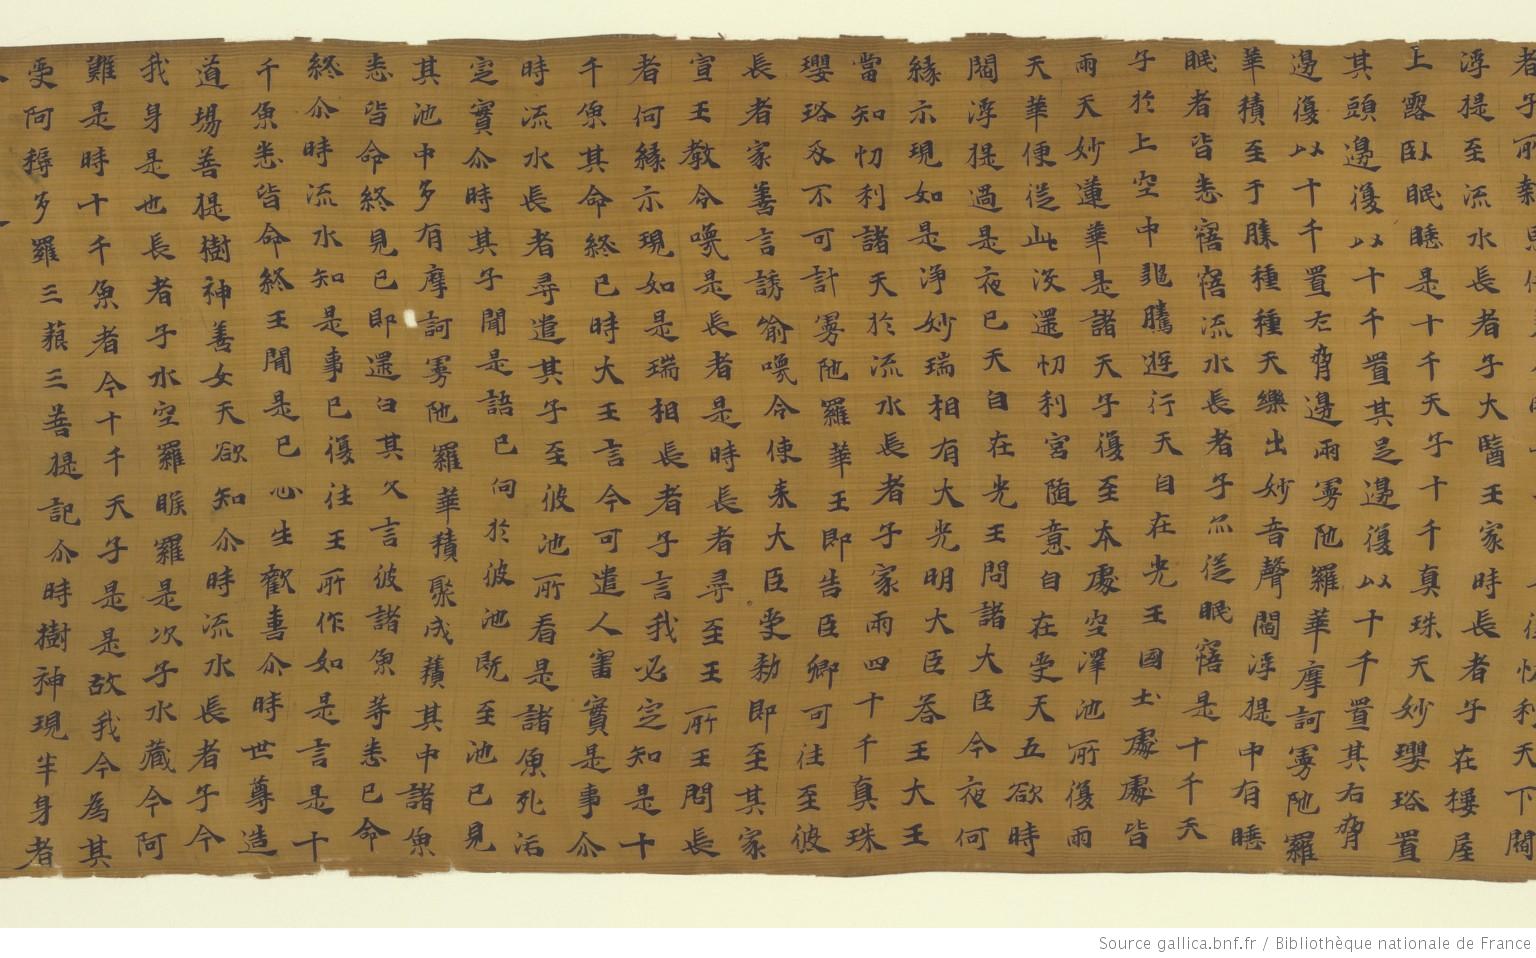 者子所
浮提至流水長者子大醫王家時長者子在樓屋
上露臥眠睡是十千天子十千真珠天妙瓔珞置
其頭邊復以十千置其足邊復以十千置其右脅
邊復以十千置左脅邊雨曼陀羅華摩訶曼陀羅
華積至于膝種種天樂出妙音聲閻浮提中有睡
眠者皆悉寤寤流水長者子亦從眠寤是十千天
子於上空中飛騰遊行天自在光王國土處處皆
雨天妙蓮華是諸天子復至本處空澤池所復雨
天華便從此沒還忉利宮隨意自在受天五欲時
閻浮提過是夜已天自在光王問諸大臣今夜何
緣示現如是淨妙瑞相有大光明大臣答王大王
當知忉利諸天於流水長者子家雨四十千真珠
瓔珞及不可計曼陀羅華王即告臣卿可往至彼
長者家善言誘喻喚令使来大臣受勅即至其家
宣王教令喚是長者是時長者尋至王所王問長
者何緣示現如是瑞相長者子言我必定知是十
千魚其命終已時大王言今可遣人審實是事尒
時流水長者尋遣其子至彼池所看是諸魚死活
定實尒時其子聞是語已向於彼池既至池已見
其池中多有摩訶曼陀羅華積聚成𧂐其中諸魚
悉皆命終見已即還白其父言彼諸魚等悉已命
終尒時流水知是事已復往王所作如是言是十
千魚悉皆命終王聞是已心生歡喜尒時世尊造
道場菩提樹神善女天欲知尒時流水長者子今
我身是也長者子水空羅睺羅是次子水藏今阿
難是時十千魚者今十千天子是是故我今為其
受阿耨多羅三藐三菩提記尒時樹神現半身者
Source gallica.bnf.fr / Bibliothèque nationale de France